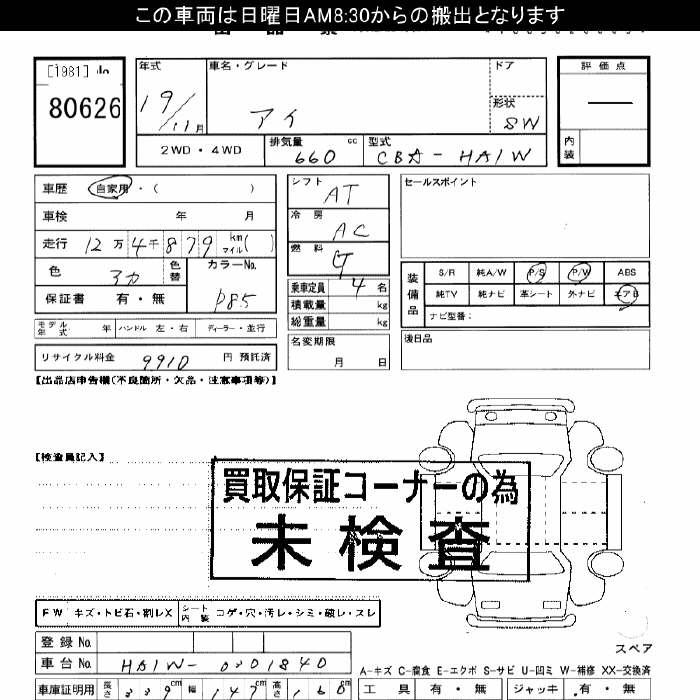 この車両は日曜日AM8:30からの搬出となります
[1981]
80626
年式 車名・グレード ドア 評価点
19/11月 アイ 形状 SW
2WD・4WD 排気量 660 cc 型式 CBA-HA1W 内装
車歴 自家用・( )
車検 年 月
走行 12万4千879 km マイル( )
色 アカ 色替 カラーNo. P85
保証書 有・無
モデル年式 年 ハンドル 左・右 ディーラー・並行
リサイクル料金 9910 円 預託済
シフト AT
冷房 AC
燃料 G
乗車定員 4 名
積載量 kg
総重量 kg
名変期限
月 日
セールスポイント
装備品 S/R 純A/W P/S P/W ABS
純TV 純ナビ 革シート 外ナビ エアB
ナビ型番:
後日品
【出品店申告欄(不良箇所・欠品・注意事項等)】
【検査員記入】
買取保証コーナーの為
未検査
FW キズ・トビ石・割レX シート内装 コゲ・穴・汚レ・シミ・破レ・スレ
登録No.
車台No. HA1W-0201840
スペア
A-キズ C-腐食 E-エクボ S-サビ U-凹ミ W-補修 XX-交換済
車庫証明用 長さ 339cm 幅 147cm 高さ 160cm 工具 有・無 ジャッキ 有・無